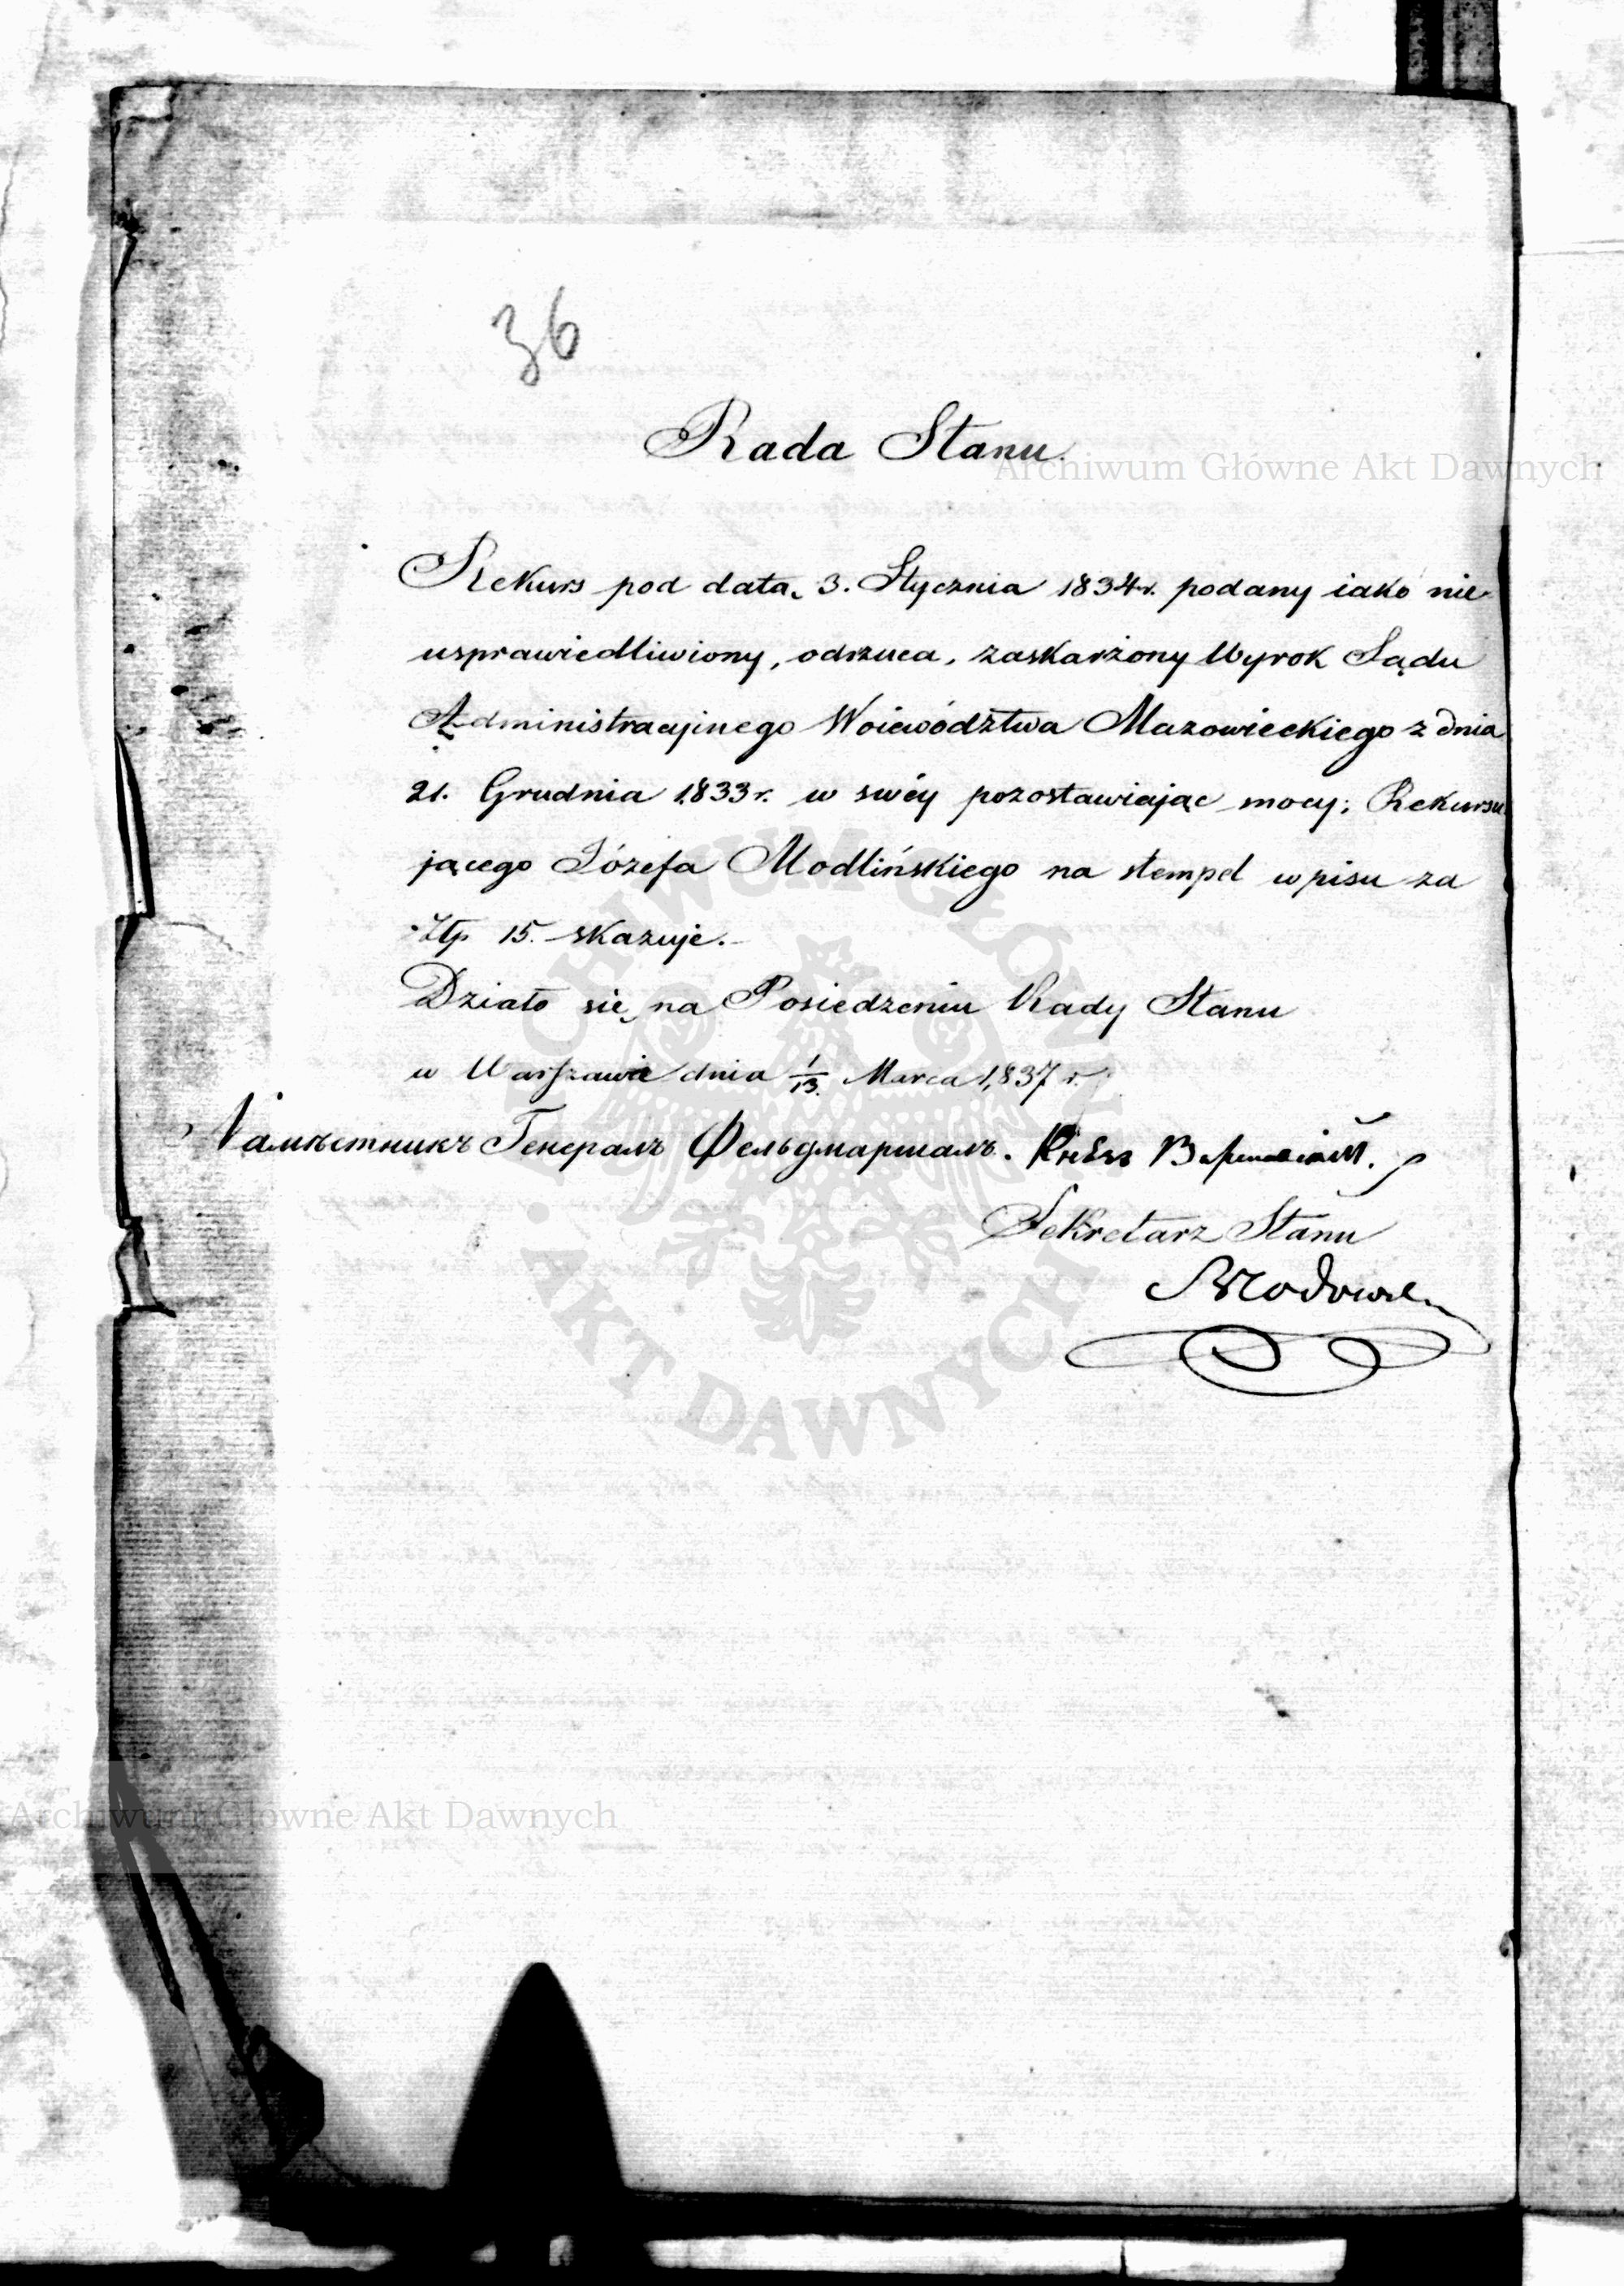 36
Rada Stanu.
Archiwum Główne Akt Dawnych
Rekurs pod datą 3. Stycznia 1834 r. podany iako nie
usprawiedliwiony, odrzuca, zaskarżony Wyrok Sądu
Administracyjnego Woiewództwa Mazowieckiego z dnia
21. Grudnia 1833 r. w swéy pozostawiając mocy; Rekursu
jącego Józefa Modlińskiego na stempel wpisu za
Złp 15. skazuje.
Działo się na Posiedzeniu Rady Stanu
w Warszawie dnia 1/13. Marca 1837 r.
Намѣстникъ Генералъ Фельдмаршалъ. Князь Варшавскій.
Sekretarz Stanu
ARCHIWUM GŁÓWNE
AKT DAWNYCH
Archiwum Główne Akt Dawnych